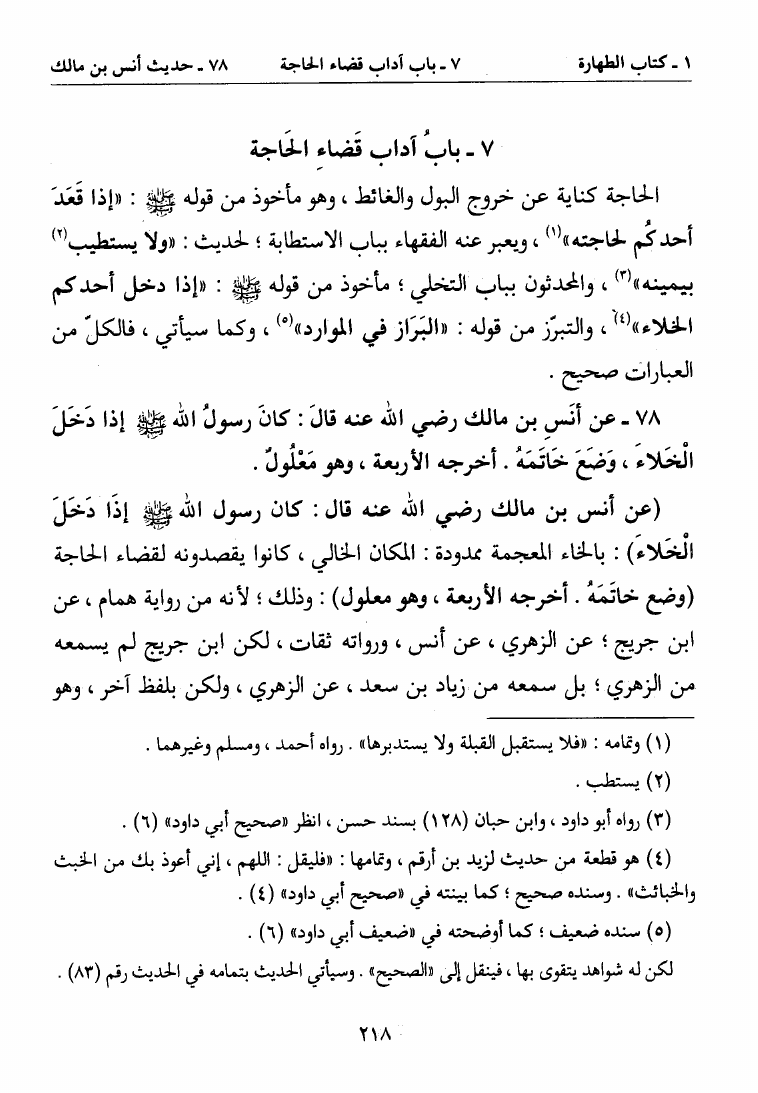 ١ ـ كتاب الطهارة ٧ ـ باب آداب قضاء الحاجة ٧٨ ـ حديث أنس بن مالك
٧ ـ بابُ آداب قَضاءِ الحَاجة
الحاجة كناية عن خروج البول والغائط ، وهو مأخوذ من قوله ﷺ : «إذا قَعَدَ
أحدكُم لحاجته»(١) ، ويعبر عنه الفقهاء بباب الاستطابة ؛ لحديث : «ولا يستطيب(٢)
بيمينه»(٣) ، والمحدثون بباب التخلي ؛ مأخوذ من قوله ﷺ : «إذا دخل أحدكم
الخلاء»(٤) ، والتبرّز من قوله : «البَرَاز في الموارد»(٥) ، وكما سيأتي ، فالكلّ من
العبارات صحيح .
٧٨ ـ عن أنَسِ بن مالك رضي الله عنه قالَ : كانَ رسولُ الله ﷺ إذا دَخَلَ
الْخَلاءَ ، وَضَعَ خَاتَمَهُ . أخرجه الأربعة ، وهو مَعْلُولٌ .
(عن أنس بن مالك رضي الله عنه قال : كان رسول الله ﷺ إذَا دَخَلَ
الْخَلاءَ) : بالخاء المعجمة ممدودة : المكان الخالي ، كانوا يقصدونه لقضاء الحاجة
(وضع خاتَمَهُ . أخرجه الأربعة ، وهو معلول) : وذلك ؛ لأنه من رواية همام ، عن
ابن جريج ؛ عن الزهري ، عن أنس ، ورواته ثقات ، لكن ابن جريج لم يسمعه
من الزهري ؛ بل سمعه من زياد بن سعد ، عن الزهري ، ولكن بلفظ آخر ، وهو
(١) وتمامه : «فلا يستقبل القبلة ولا يستدبرها» . رواه أحمد ، ومسلم وغيرهما .
(٢) يستطب .
(٣) رواه أبو داود ، وابن حبان (١٢٨) بسند حسن ، انظر «صحيح أبي داود» (٦) .
(٤) هو قطعة من حديث لزيد بن أرقم ، وتمامها : «فليقل : اللهم ، إني أعوذ بك من الخبث
والخبائث» . وسنده صحيح ؛ كما بينته في «صحيح أبي داود» (٤) .
(٥) سنده ضعيف ؛ كما أوضحته في «ضعيف أبي داود» (٦) .
لكن له شواهد يتقوى بها ، فينقل إلى «الصحيح» . وسيأتي الحديث بتمامه في الحديث رقم (٨٣) .
٢١٨